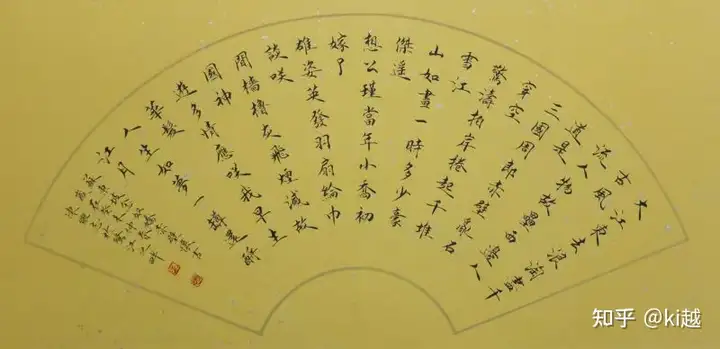 大江東去浪淘盡千
古風
流人物故壘西邊人
道是
三國周郎赤壁亂石
穿空
驚濤拍岸捲起千堆
雪江
山如畫一時多少豪
傑遙
想公瑾當年小喬初
嫁了
雄姿英發羽扇綸巾
談咲
間檣櫓灰飛煙滅故
國神
遊多情應咲我早生
華髮
人生如夢一罇還酹
江月
知乎 @ki越